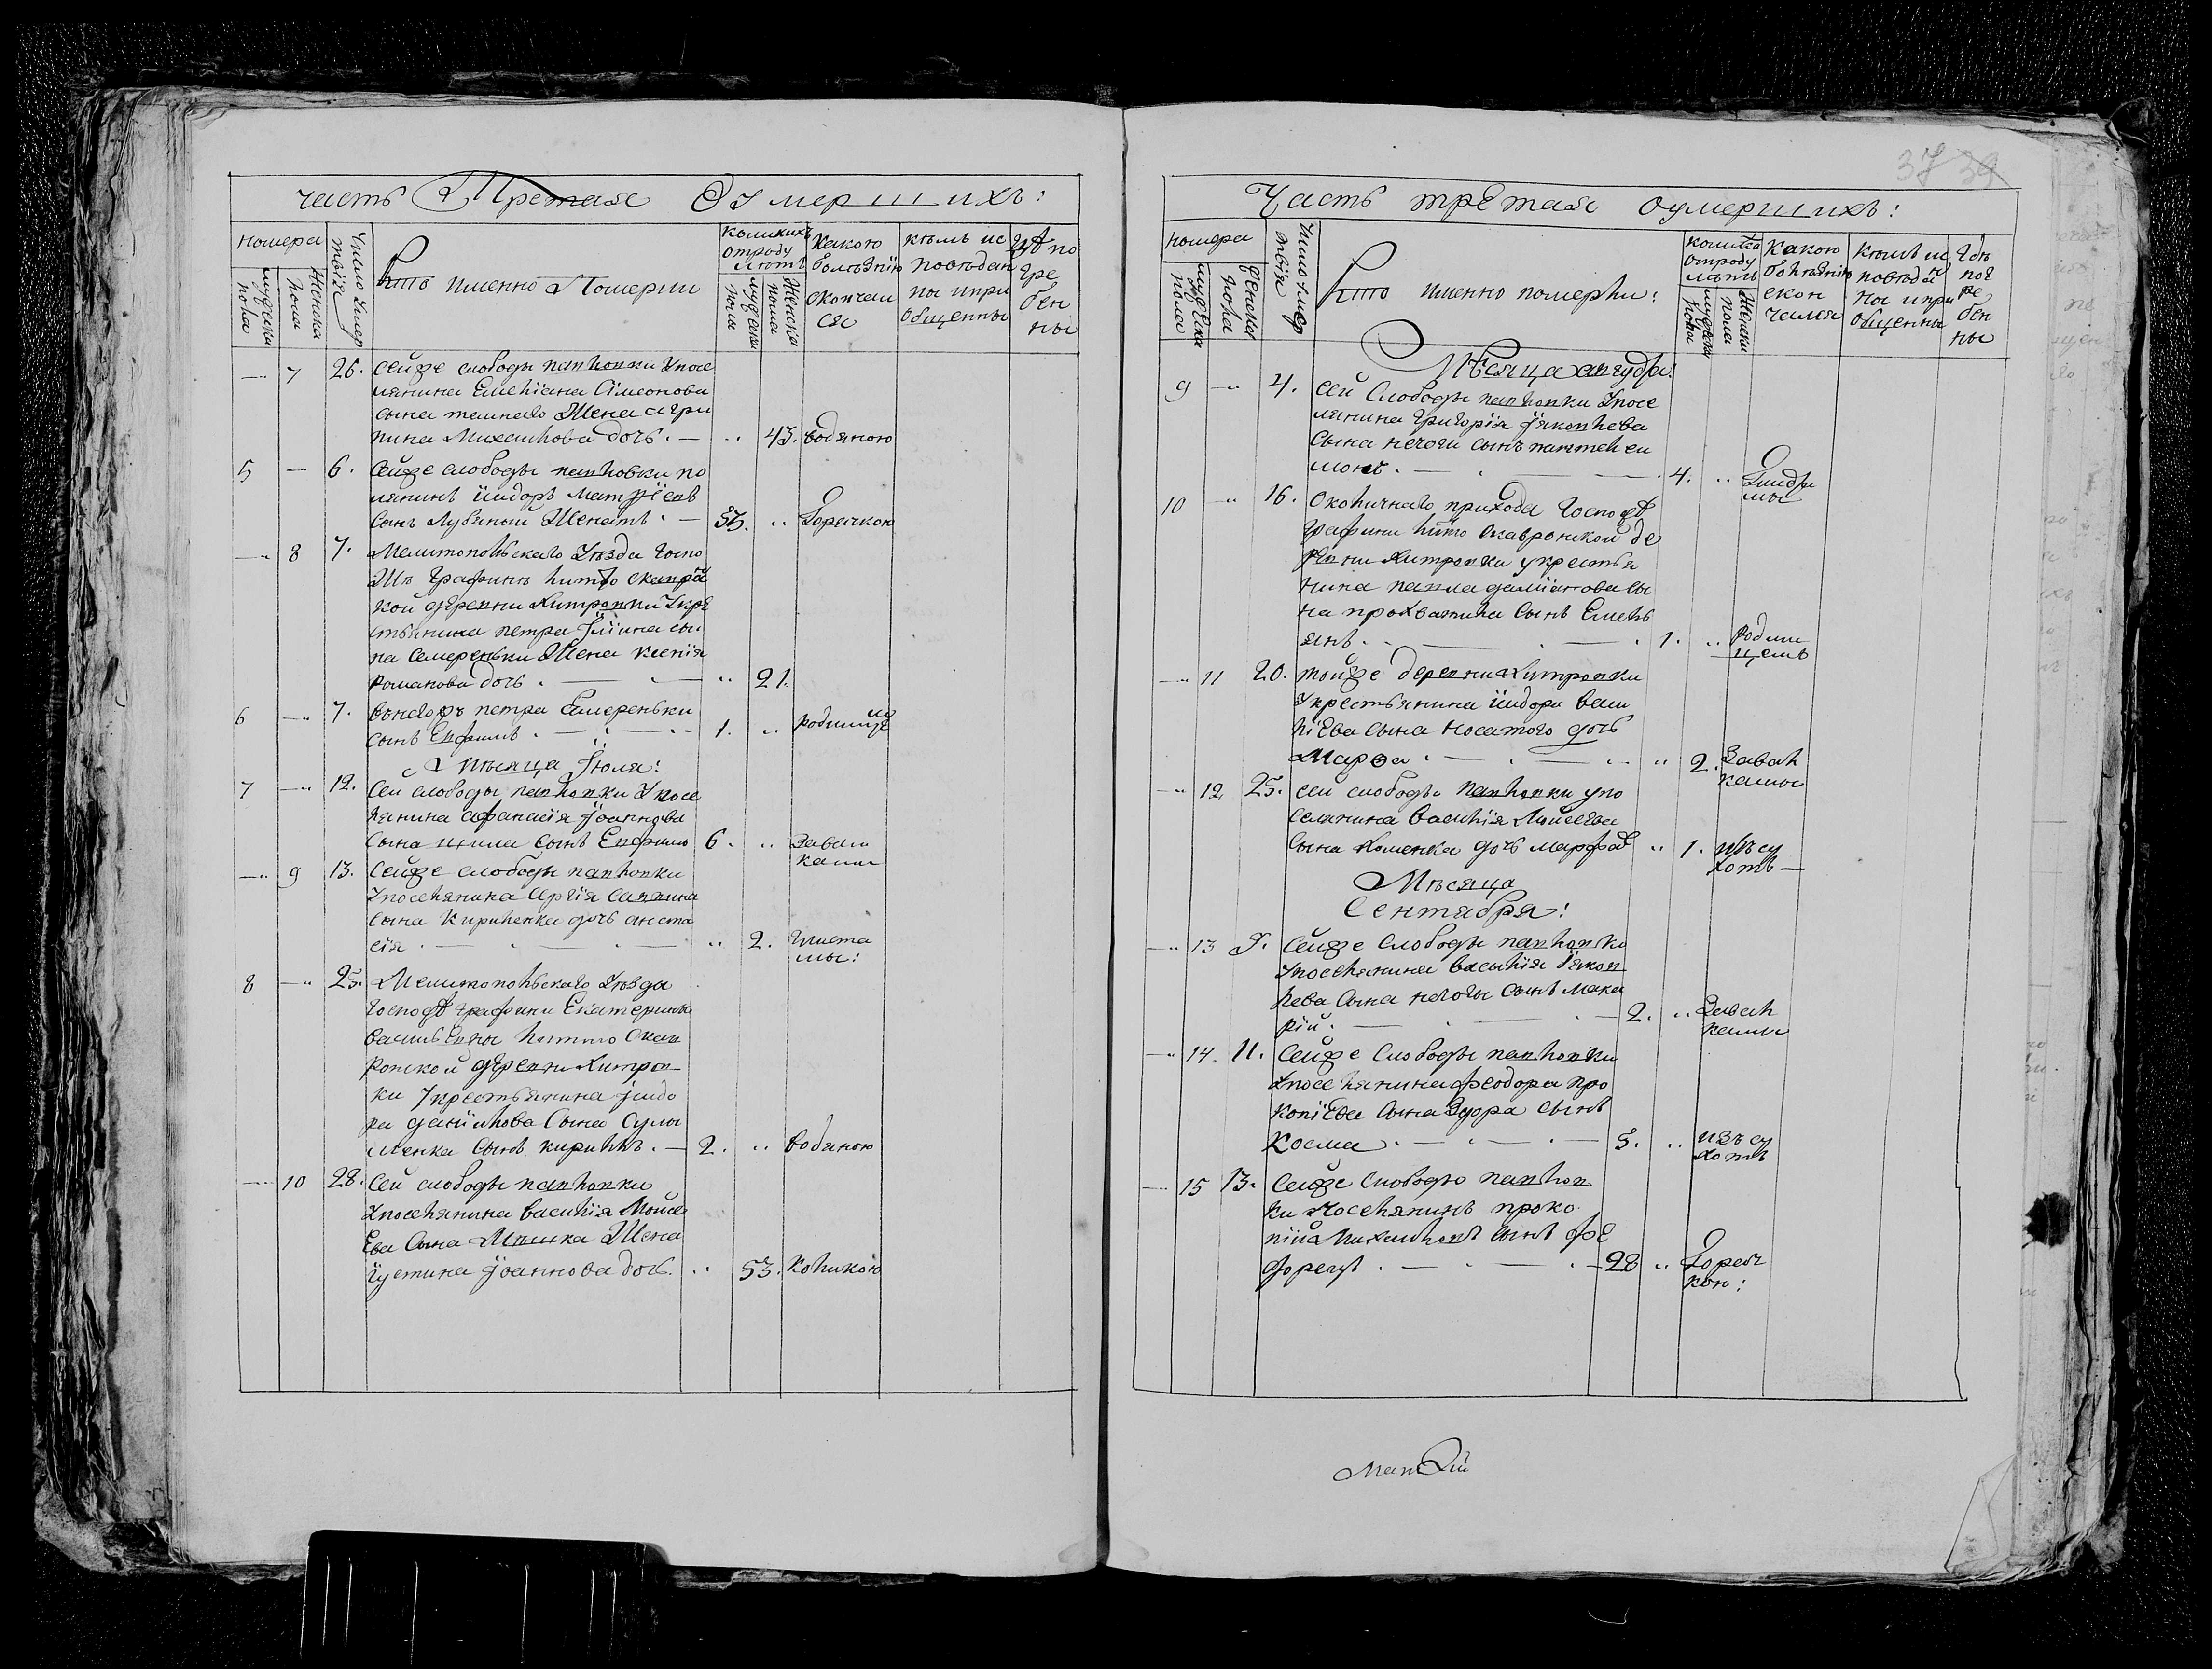 часть Третая Оумершихъ:
номера
мужеска пола
Женска пола
Число умертвїя
Кто именно Померли
коликихъ отроду лѣтъ
мужеска пола
Женска пола
Какою болѣзнїю скончалися
кѣмъ исповѣданы и приобщенны
гдѣ погребенны
— 7 26. Сейже слободы павловки Упосе
лянина Емелїана Сѵмеонова
сына темнаго Жена агри
пина Михаилова дочь. — .. 43. водяною
5 — 6. Сейже слободы павловки по
лянинъ їсидоръ матфїевъ
Сынъ Лубяный Женатъ. — 53. .. Горячкою
— 8 7. Мелитопольскаго Уѣзда Госпо
жѣ Графинѣ литто скавра
кой деревни Дмитровки Укре
стьянина петра Їлїина сы
на Семереньки Жена ксенїя
Романова дочь. — .. 21.
6 — 7. вънегожъ петра Семереньки
сынъ Евфимъ. — 1. .. Родимце
Мѣсяца Їюля:
7 — 12. Сей слободы павловки Упосе
лянина афанасїя Їоаннова
Сына шила сынъ Евфимъ 6. .. Завал
ками
— 9 13. Сейже слободы павловки
Упоселянина Сергїя Саввина
Сына Кириленка дочь анаста
сїя. — .. 2. Глиста
мы:
8 — 25. Мелитопольскаго Уѣзда
Господѣ графини Екатерины
васильевны литто Скав
ронской деревни Дмитров
ки Укрестьянина їсидо
ра данїилова Сына Сулы
менка Сынъ кириллъ. — 2. .. водяною
— 10 28. Сей слободы павловки
Упоселянина василїя Мойсе
ева Сына Мѣшка Жена
їустина Їоаннова дочь. .. 53. Коликою
37 39
Часть третая оумершихъ:
номера
мужеска пола
женска пола
Число умертвїя
Кто именно померли:
колика отроду лѣтъ
мужеска пола
Женска пола
Какою болѣзнїю скончался
Кѣмъ исповѣданы и приобщенны
Гдѣ погребенны
Мѣсяца августа:
9 — 4. Сей Слободы павловки Упосе
лянина Григорїя Їяковлева
Сына нечоги сынъ пантелеи
монъ. — 4. ..
10 — 16. Околичнаго прихода Господѣ
графини литто скавронской де
ревни Дмитровки укрестья
нина павла дамїанова сы
на прохватила Сынъ Емель
янъ. — 1. .. Родим
цемъ
— 11 20. тойже деревни Дмитровки
Укрестьянина їсидора васи
лїева Сына носатого дочь
Марѳа. — .. 2. Завал
камы
— 12 25. сей слободы павловки упо
селянина василїя Мойсеева
Сына Хоменка дочь марфа .. 1. изъсу
хотъ —
Мѣсяца
Сентября:
— 13 9. Сейже Слободы павловки
Упоселянина василїя Їяков
лева Сына нечоги Сынъ мака
рїй. — 2. .. Завал
камы
— 14. 11. Сейже Слободы павловки
Упоселянина феодора про
копїева Сына Здора сынъ
Косма. — 5. .. изъ су
хотъ
— 15 13. Сейже Слободы павлов
ки Поселянинъ проко
пїй Михаиловъ сынъ
— 28 .. Горяч
кою: